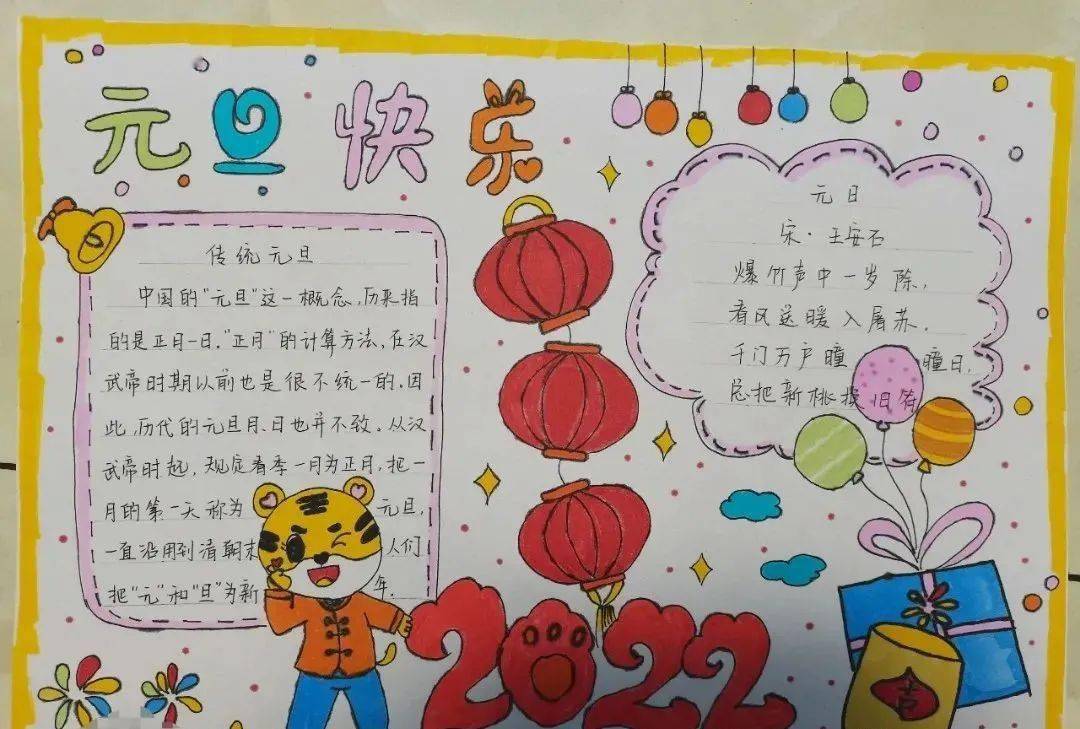 元旦快乐
传统元旦
中国的“元旦”这一概念,历来指
的是正月一日.“正月”的计算方法,在汉
武帝时期以前也是很不统一的.因
此,历代的元旦月、日也并不致.从汉
武帝时起,规定春季一月为正月,把一
月的第一天称为 元旦,
一直沿用到清朝末 人们
把“元”和“旦”为新 年.
元日
宋·王安石
爆竹声中一岁除,
春风送暖入屠苏.
千门万户瞳 瞳日,
总把新桃换旧符
2022
吉